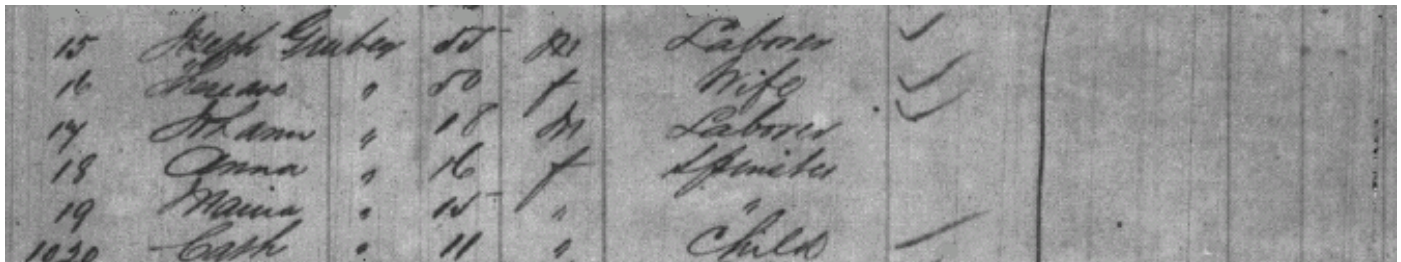 15 Joseph Gruber 55 M Laborer ✓
16 Therese " 50 f Wife ✓
17 Johann " 18 M Laborer ✓
18 Anna " 16 f Spinster
19 Maria " 15 " "
1020 Cath " 11 " Child